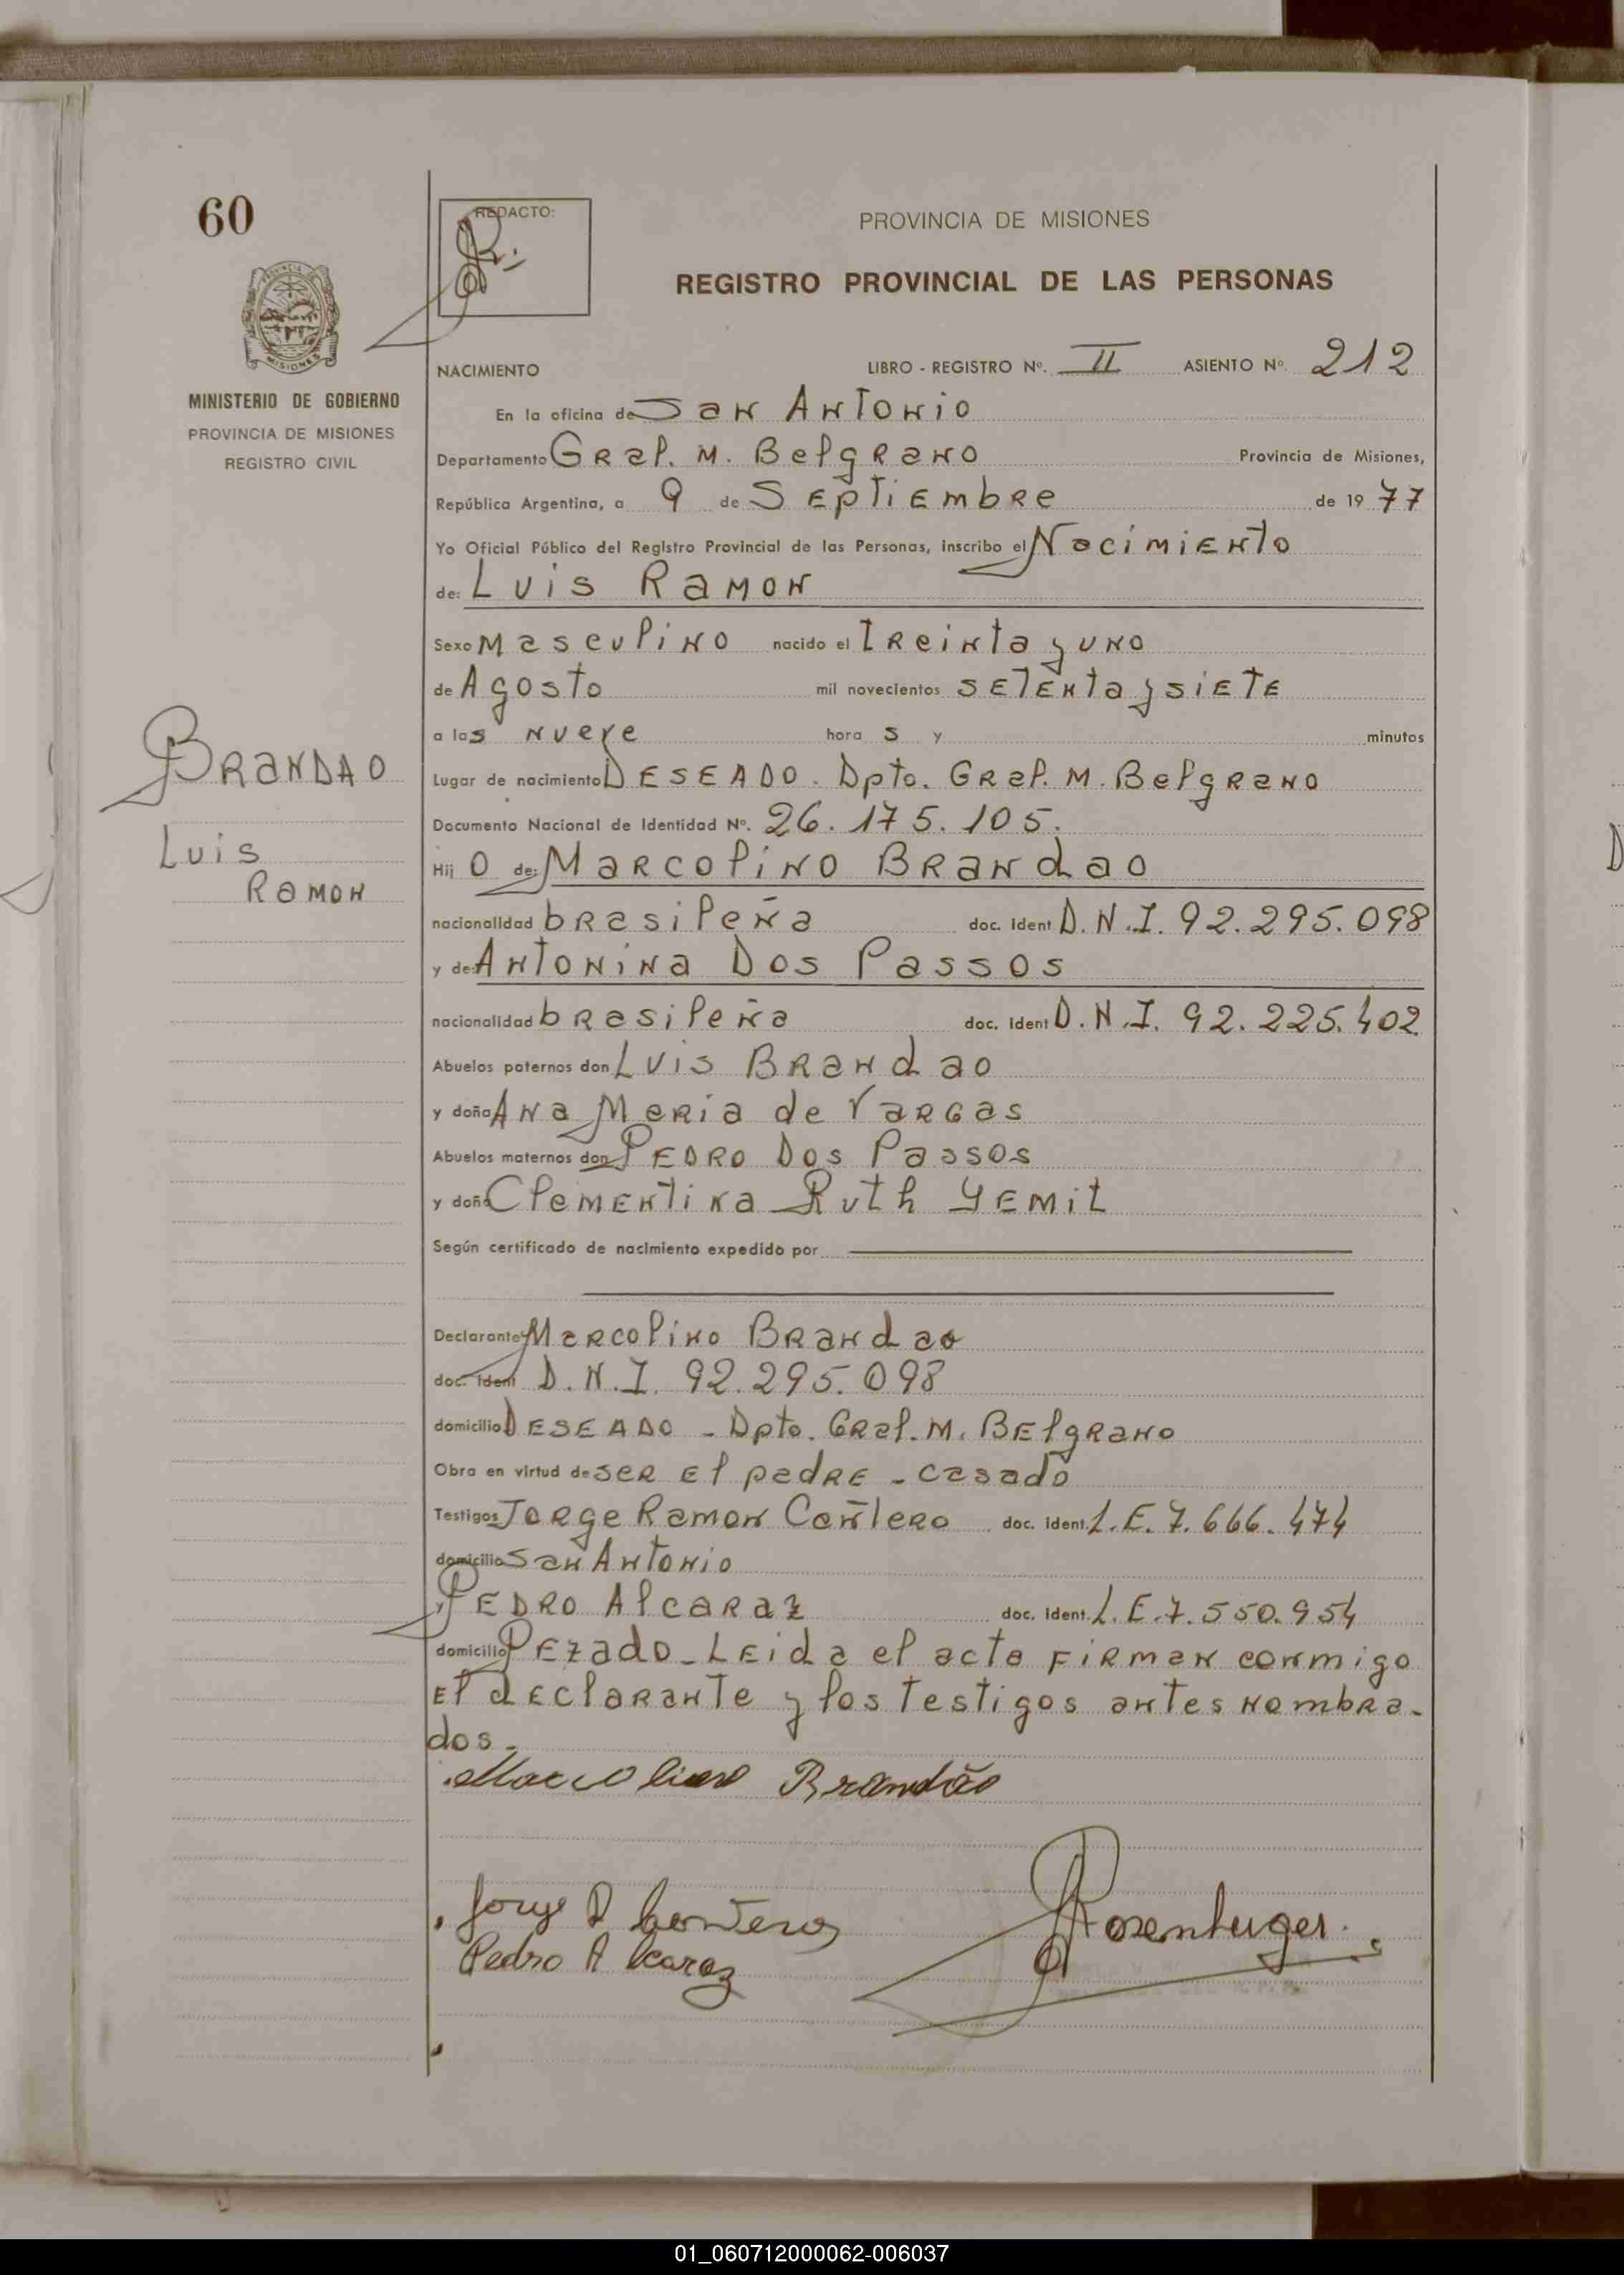 60
REDACTO:
PROVINCIA DE MISIONES
REGISTRO PROVINCIAL DE LAS PERSONAS
MISIONES
MINISTERIO DE GOBIERNO
PROVINCIA DE MISIONES
REGISTRO CIVIL
NACIMIENTO LIBRO - REGISTRO Nº. II ASIENTO Nº. 212
En la oficina de San Antonio
Departamento Gral. M. Belgrano Provincia de Misiones,
República Argentina, a 9 de Septiembre de 1977
Yo Oficial Público del Registro Provincial de las Personas, inscribo el Nacimiento
de: Luis Ramon
Sexo Masculino nacido el Treinta y uno
de Agosto mil novecientos setenta y siete
a las nueve hora s y minutos
Lugar de nacimiento Deseado. Dpto. Gral. M. Belgrano
Documento Nacional de Identidad Nº. 26.175.105.
Hij o de: Marcolino Brandao
nacionalidad brasileña doc. ident D.N.I. 92.295.098
y de: Antonina Dos Passos
nacionalidad brasileña doc. ident D.N.I. 92.225.402
Abuelos paternos don Luis Brandao
y doña Ana Maria de Vargas
Abuelos maternos don Pedro Dos Passos
y doña Clementina Ruth Yemit
Según certificado de nacimiento expedido por
Declarante Marcolino Brandao
doc. ident D.N.I. 92.295.098
domicilio Deseado - Dpto. Gral. M. Belgrano
Obra en virtud de ser el padre - casado
Testigos Jorge Ramon Cantero doc. ident. L.E. 7.666.474
domicilio San Antonio
y Pedro Alcaraz doc. ident. L.E. 7.550.954
domicilio Pezado - Leida el acta firman conmigo
el declarante y los testigos antes nombra-
dos.
Brandao
Luis
Ramon
Marcolino Brandão
Jorge R Cantero
Pedro Alcaraz
01_060712000062-006037